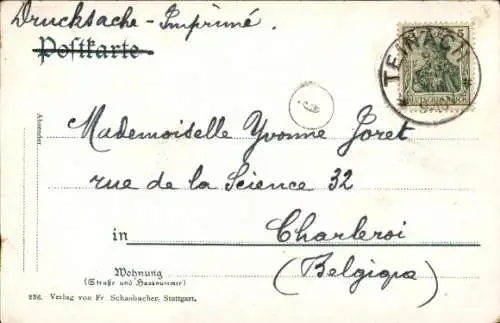 Drucksache - Imprimé.
Postkarte
TEINACH
Absender
Mademoiselle Yvonne Joret
rue de la Science 32
in Charleroi
(Belgiqpa)
Wohnung
(Straße und Hausnummer)
236. Verlag von Fr. Schanbacher, Stuttgart.